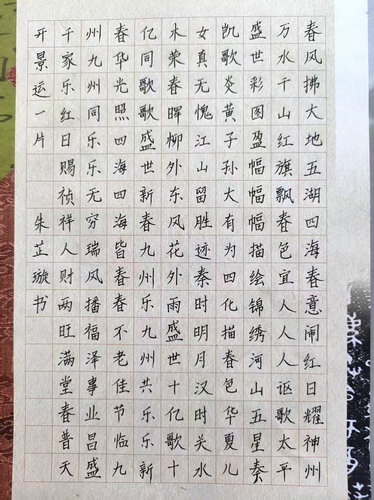 春风拂大地五湖四海春意闹红日耀神州
万水千山红旗飘春色宜人人人讴歌太平
盛世彩图盈幅幅幅描绘锦绣河山五星奏
凯歌炎黄子孙大有为四化描春色华夏儿
女真无愧江山留胜迹秦时明月汉时关水
木荣春晖柳外东风花外雨盛世十亿歌十
亿同歌歌盛世新春九州乐九州共乐乐新
春华光照四海四海皆春春不老佳节临九
州九州同乐乐无穷瑞风播福泽事业昌盛
千家乐红日赐祯祥人财两旺满堂春普天
开景运一片 朱芷璇书